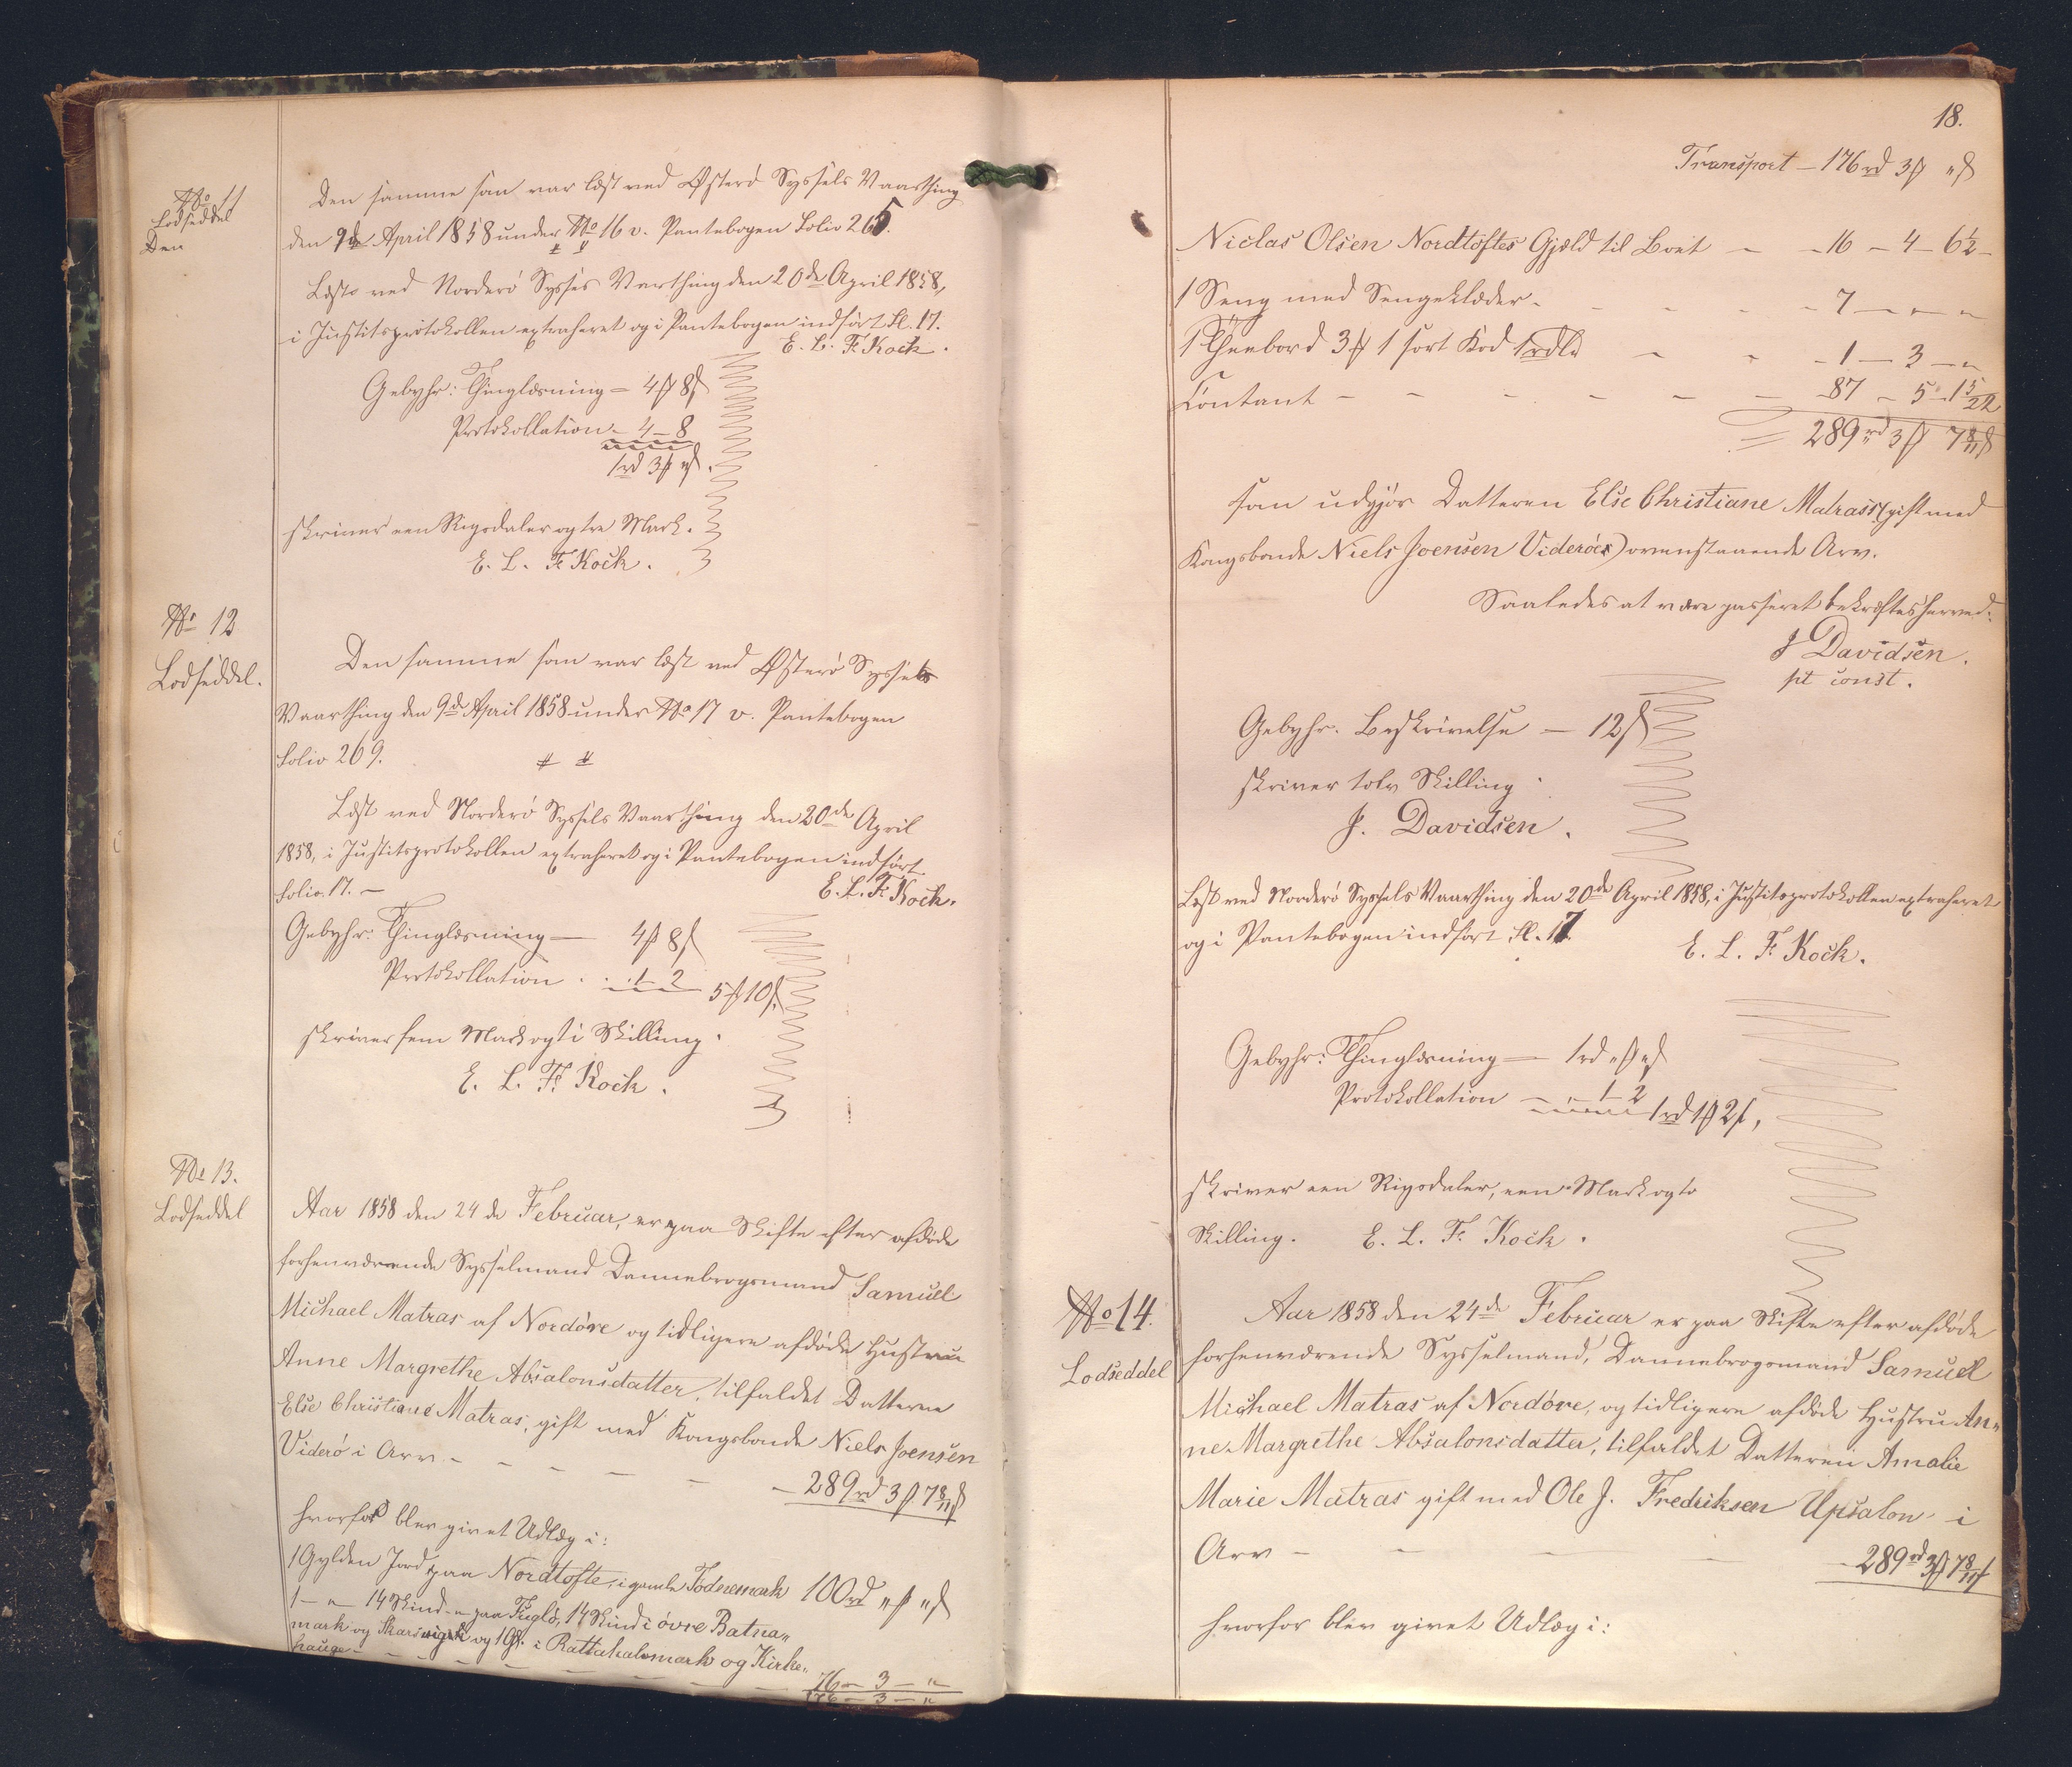 No 11
Lodseddel
Den
Den samme som var læst ved Østerø Syssels Vaarthing
den 9de April 1858 under No 16 v. Pantebogen Folio 265.
Læst ved Norderø Syssels Varthing den 20de April 1858,
i Justitsprotokollen extraheret og i Pantebogen indført Fl. 17.
E. L. F. Kock.
Gebyhr: Thinglæsning – 4 ꟿ 8 ß
Protokollation – 4 – 8
1 rd 3 ꟿ „ ß.
skriver een Rigsdaler og tre Mark.
E. L. F. Kock.
No 12
Lodseddel.
Den samme som var læst ved Østerø Syssels
Vaarthing den 9de April 1858 under No 17 v. Pantebogen
Folio 269.
Læst ved Norderø Syssels Vaarthing den 20de April
1858, i Justitsprotokollen extraheret og i Pantebogen indført
Folio 17. –
E. L. F. Kock.
Gebyhr: Thinglæsning – 4 ꟿ 8 ß
Protokollation . . 1 – 2 5 ꟿ 10 ß.
skriver fem Mark og ti Skilling.
E. L. F. Kock.
No 13.
Lodseddel
Aar 1858 den 24de Februar, er paa Skifte efter afdøde
forhenværende Sysselmand Dannebrogsmand Samuel
Michael Matras af Nordøre og tidligere afdøde Hustrue
Anne Margrethe Absalonsdatter, tilfaldet Datteren
Else Christiane Matras, gift med Kongsbonde Niels Joensen
Viderø i Arv – – – – – – 289 rd 3 ꟿ 7 8/11 ß
hvorfor blev givet Udlæg i:
1 Gylden Jord paa Nordtofte, i gamle Föderemark 100 rd „ ꟿ „ ß
1 – „ – 14 Skind – „ paa Fuglø, 14 Skind i övre Batna„
mark og og 1 Gl. i Rattahalsmark og Kirke„
hauge – – – – – – – 76 – 3 – „
176 – 3 – „
18.
Transport – 176 rd 3 ꟿ „ ß
Niclas Olsen Nordtoftes Gjæld til Boet – – 16 – 4 – 6 1/2 –
1 Seng med Sengeklæder – – – – – 7 – „ – „
1 Theebord 3 ꟿ 1 sort Kod 1 rdlr – – – 1 – 3 – „
Contant – – – – – – – 87 – 5 – 1 5/22
= 289 rd 3 ꟿ 7 8/11 ß
som udgjør Datteren Else Christiane Matrass (gift med
Kongsbonde Niels Joensen Viderøes) ovenstaaende Arv.
Saaledes at være passeret bekræftes herved.
J Davidsen.
pt const.
Gebyhr. Beskrivelse – 12 ß
skriver tolv Skilling.
J. Davidsen.
Læst ved Norderø Syssels Vaarthing den 20de April 1858, i Justitsprotokollen extraheret
og i Pantebogen indført Fl. 17.
E. L. F. Kock.
Gebyhr: Thinglæsning – 1 rd „ ꟿ „ ß
Protokollation – „ – 1 – 2 1 rd 1 ꟿ 2 ß,
skriver een Rigsdaler, een Mark og to
Skilling. E. L. F. Kock.
No 14.
Lodseddel
Aar 1858 den 24de Februar er paa Skifte efter afdøde
forhenværende Sysselmand, Dannebrogsmand Samuel
Michael Matras af Nordøre, og tidligere afdøde Hustru An„
ne Margrethe Absalonsdatter, tilfaldet Datteren Amalie
Marie Matras gift med Ole J. Fredriksen Upsalon i
Arv – – – – – 289 rd 3 ꟿ 7 8/11 ß
hvorfor blev givet Udlæg i: